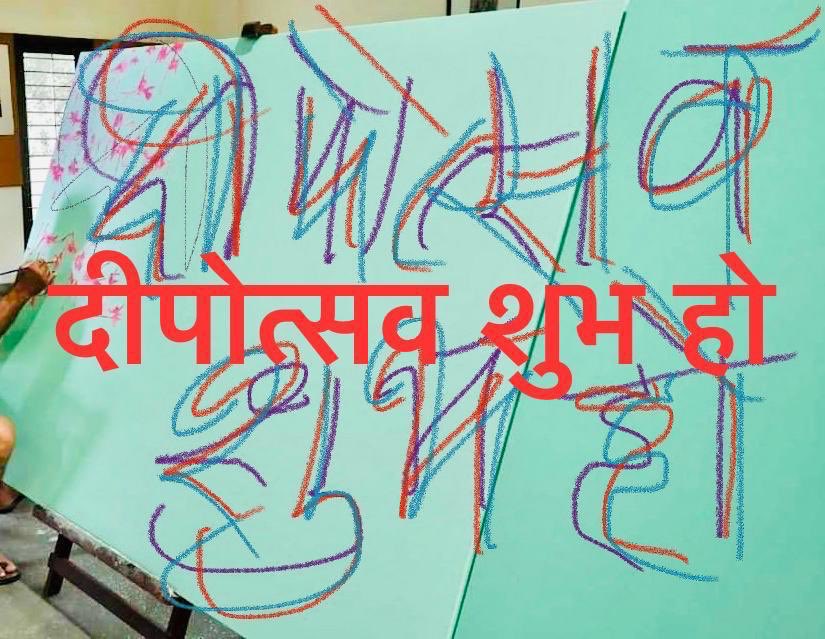 दीपोत्सव
दीपोत्सव शुभ हो
शुभ हो